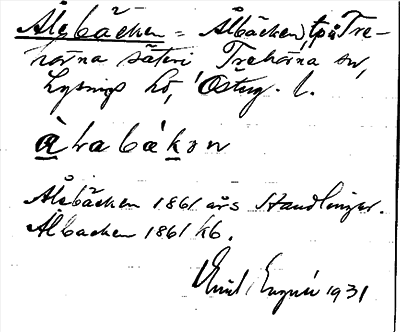 Ålebäcken = Ålbäcken, tp å Tre-
hörna säteri Trehörna sn,
Lysings hd, Östug. l.
àlabákon
Ålebäcken 1861 års Handlingar.
Albäcken 1861 kb.
Emil 1931